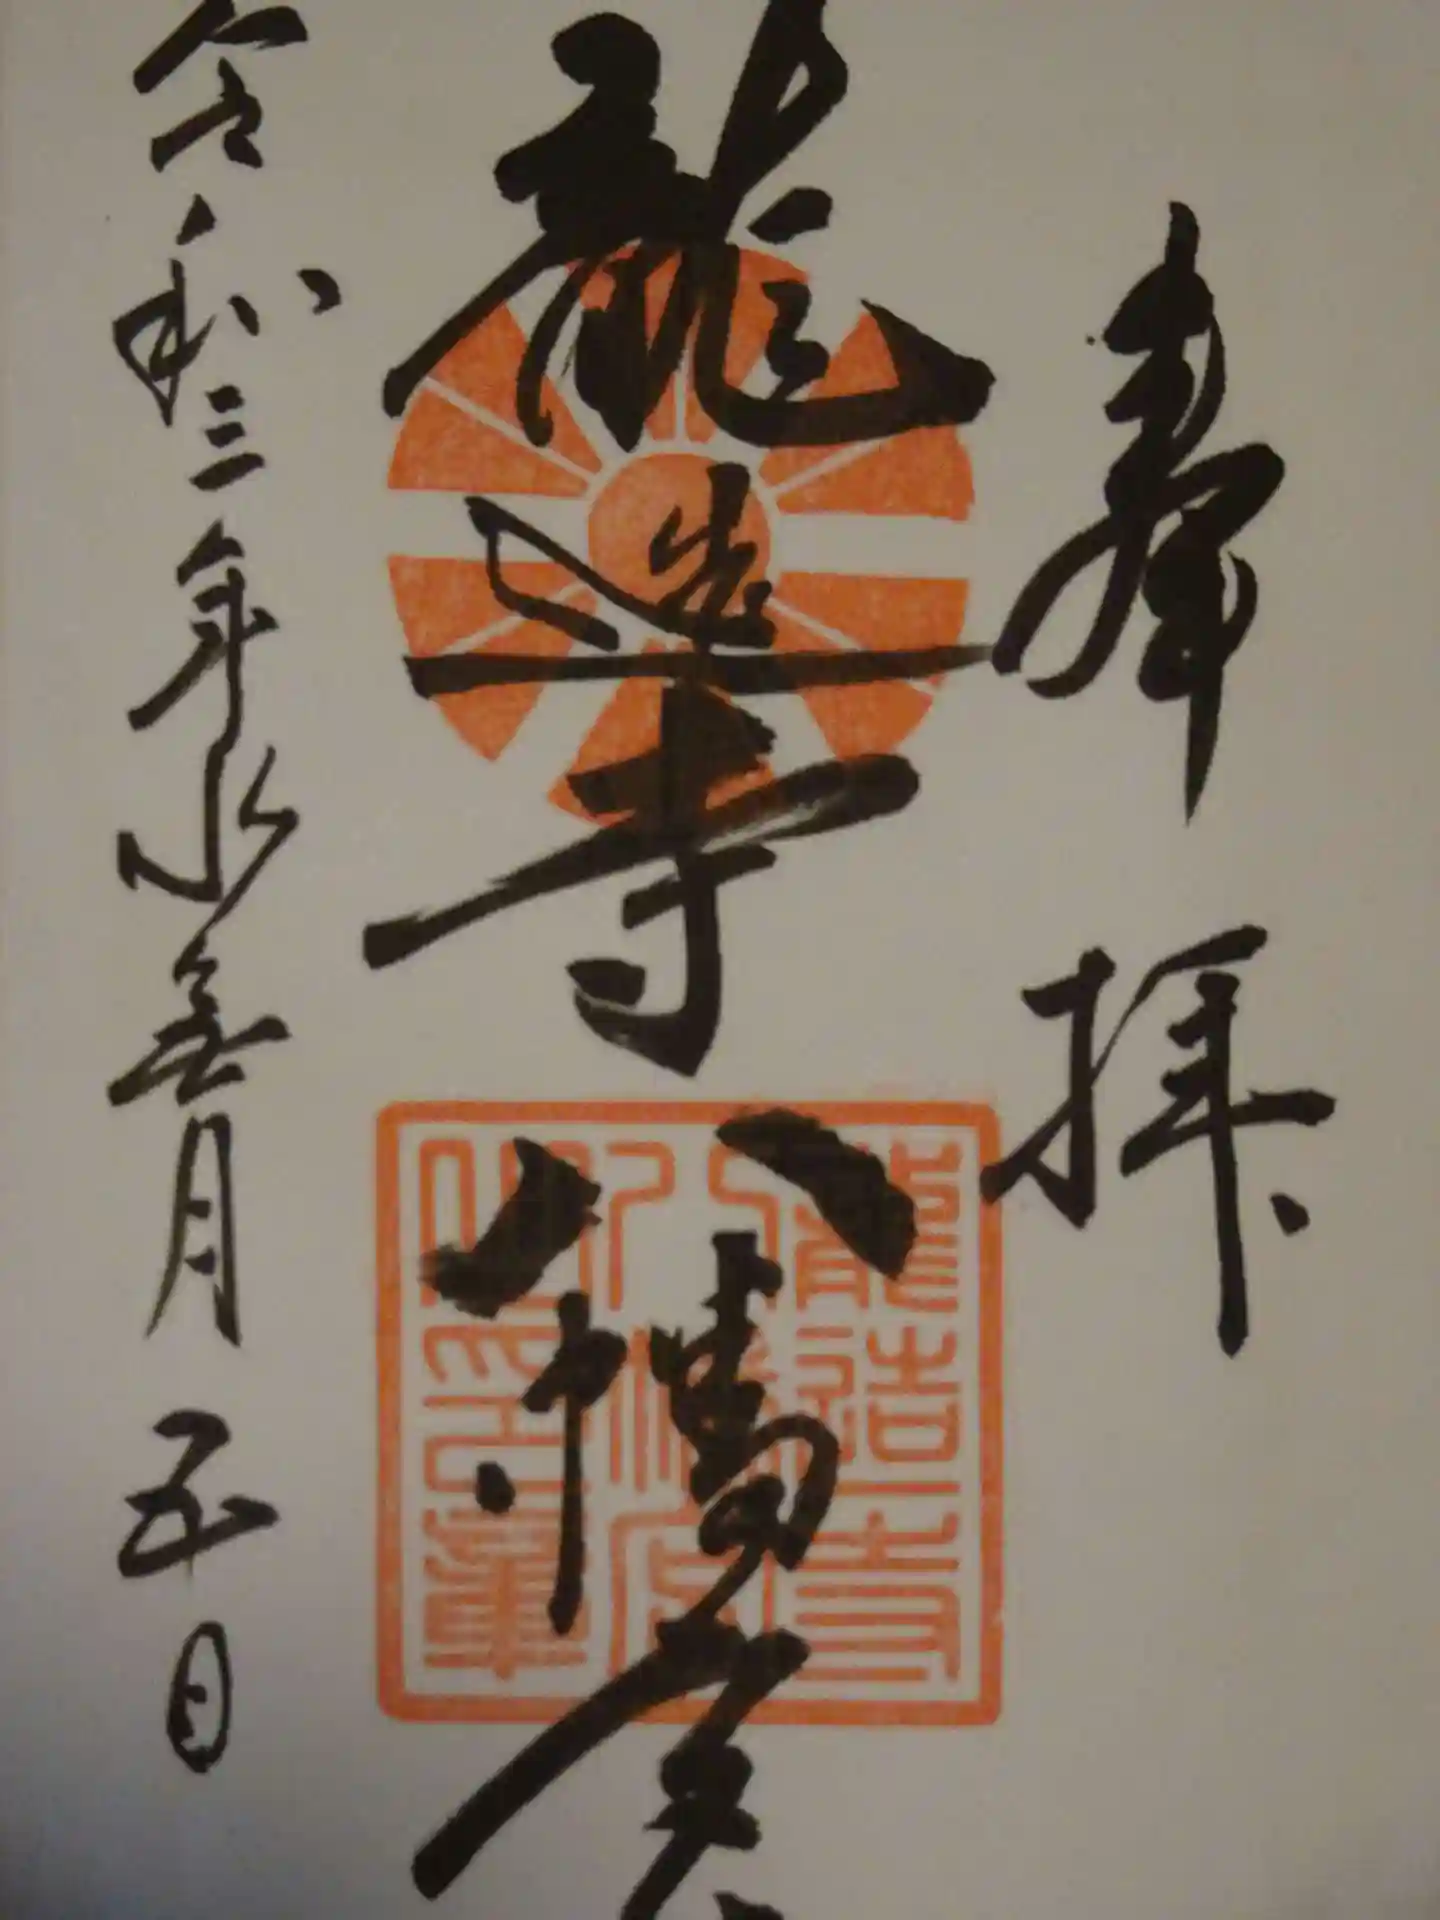 奉拝
龍造寺八幡宮
龍造寺
八幡宮
之印章
令和三年水無月五日